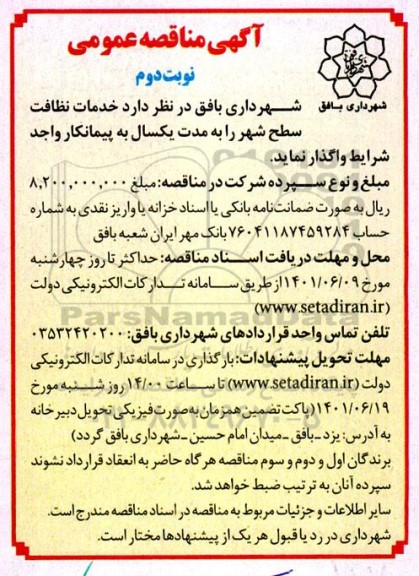 آگهی مناقصه عمومی
نوبت دوم
شهرداری بافق
شهرداری بافق در نظر دارد خدمات نظافت
سطح شهر را به مدت یکسال به پیمانکار واجد
شرایط واگذار نماید.
مبلغ و نوع سپرده شرکت در مناقصه: مبلغ ۸,۲۰۰,۰۰۰,۰۰۰
ریال به صورت ضمانت‌نامه بانکی یا اسناد خزانه یا واریز نقدی به شماره
حساب ۷۶۰۴۱۱۸۷۴۵۹۲۸۴ بانک مهر ایران شعبه بافق
محل و مهلت دریافت اسناد مناقصه: حداکثر تا روز چهارشنبه
مورخ ۱۴۰۱/۰۶/۰۹ از طریق سامانه تدارکات الکترونیکی دولت
(www.setadiran.ir)
تلفن تماس واحد قراردادهای شهرداری بافق: ۰۳۵۳۲۴۲۰۲۰۰
مهلت تحویل پیشنهادات: بارگذاری در سامانه تدارکات الکترونیکی
دولت (www.setadiran.ir) تا ساعت ۱۴/۰۰ روز شنبه مورخ
۱۴۰۱/۰۶/۱۹ (پاکت تضمین همزمان به صورت فیزیکی تحویل دبیرخانه
به آدرس: یزد - بافق - میدان امام حسین - شهرداری بافق گردد)
برندگان اول و دوم و سوم مناقصه هر گاه حاضر به انعقاد قرارداد نشوند
سپرده آنان به ترتیب ضبط خواهد شد.
سایر اطلاعات و جزئیات مربوط به مناقصه در اسناد مناقصه مندرج است.
شهرداری در رد یا قبول هر یک از پیشنهادها مختار است.
ParsNamadData